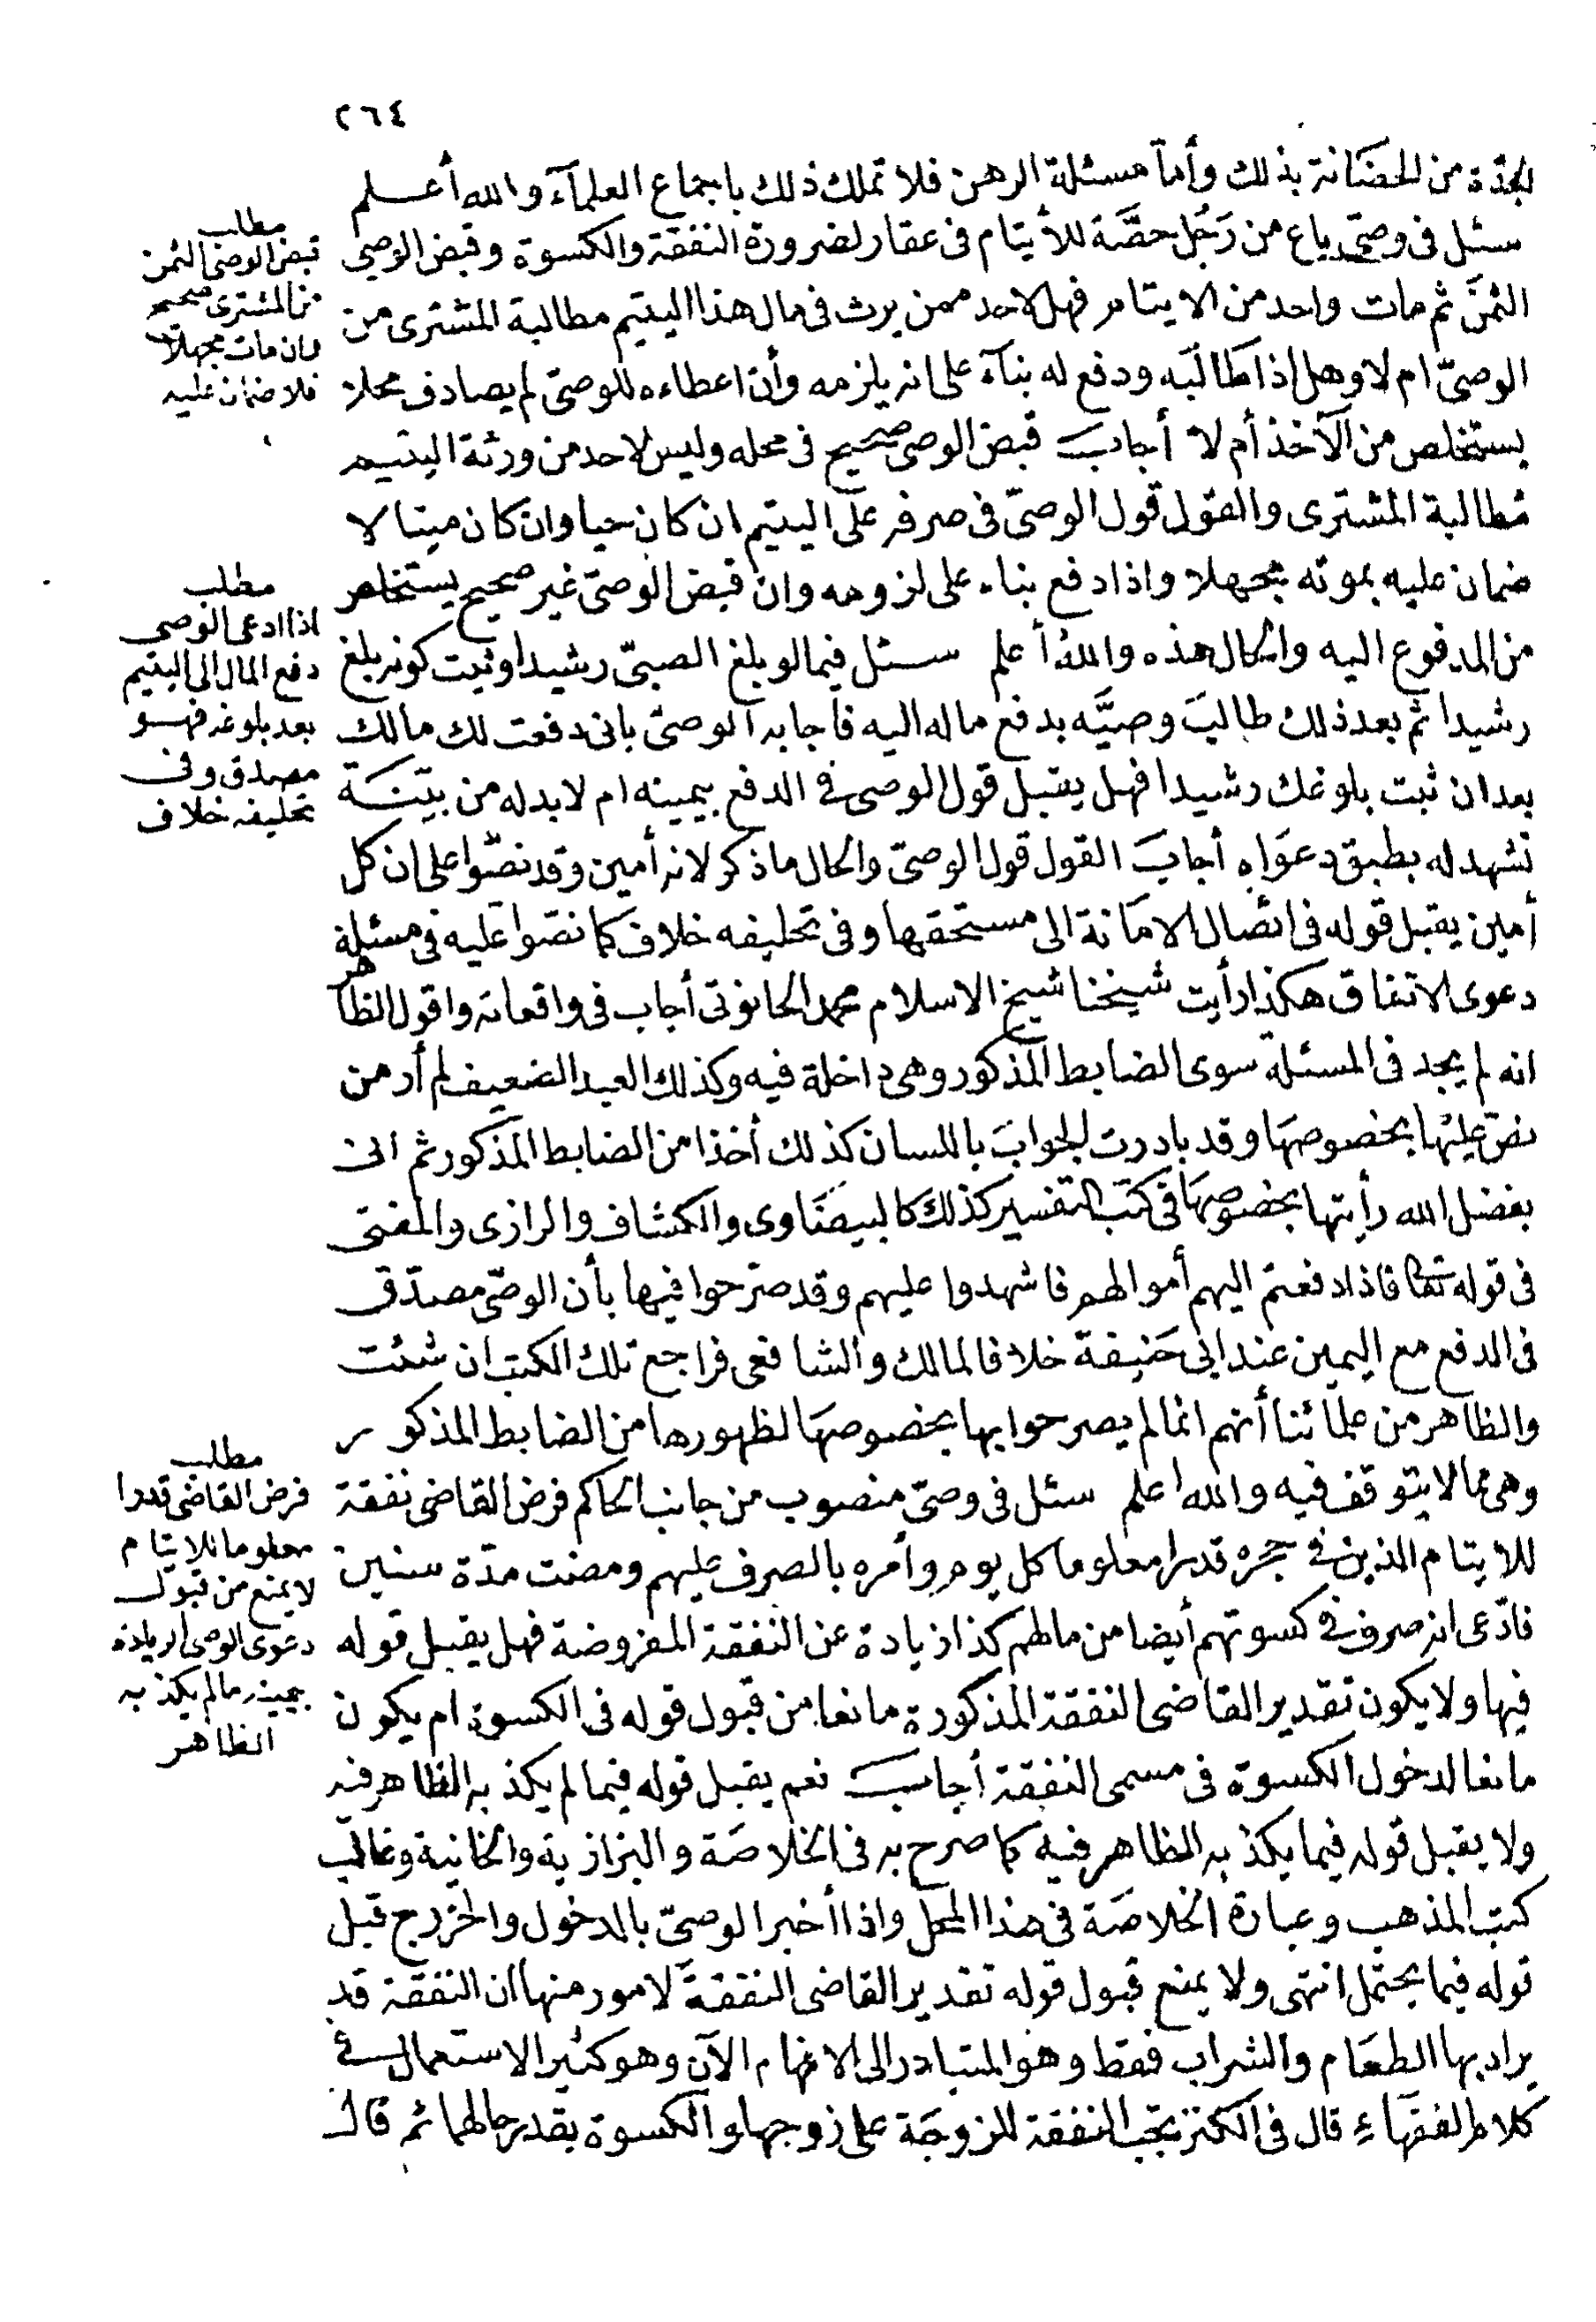 ٢٦٤
الجدّة من الحضانة بذلك وأما مسئلة الرهن فلا تملك ذلك باجماع العلمآء والله أعلم
سئل فى وصىّ باع من رَجُل حصَّةً للأيتام فى عقار لضرورة النفقة والكسوة وقبض الوصي
الثمنَ ثم مات واحد من الايتام فهل لاحد ممن يرث فى مال هذا اليتيم مطالبة المشترى من
الوصىّ ام لا وهل اذا طالبه ودفع له بنآء على انه يلزمه وأن اعطاءه للوصىّ لم يصادف محلا
يستخلص من الآخذ أم لا أجاب قبض الوصى صحيح فى محله وليس لاحد من ورثة اليتيم
مطالبة المشترى والقول قول الوصىّ فى صرفه على اليتيم ان كان حيا وان كان ميتا لا
ضمان عليه بموته مجهلا واذا دفع بناء على لزومه وان قبض الوصىّ غير صحيح يستخلص
من المدفوع اليه والحال هذه والله أعلم سئل فيما لو بلغ الصبىّ رشيدا وثبت كونه بلغ
رشيدا ثم بعد ذلك طالبَ وصيَّه بدفع ماله اليه فاجابه الوصىّ بانى دفعت لك مالك
بعد ان ثبت بلوغك رشيدا فهل يقبل قول الوصى فى الدفع بيمينه ام لا بد له من بيّنة
تشهد له بطبق دعواه أجابَ القول قول الوصىّ والحال ما ذكر لانه أمين وقد نصّوا على ان كل
أمين يقبل قوله فى ايصال الامانة الى مستحقها وفى تحليفه خلاف كما نصّوا عليه فى مسئلة
دعوى الانفاق هكذا رأيت شيخنا شيخ الاسلام محمد الحانوتى أجاب فى واقعاته واقول الظاهر
انه لم يجد فى المسئلة سوى الضابط المذكور وهى داخلة فيه وكذلك العبد الضعيف لم أر من
نصّ عليها بخصوصها وقد بادرت لجواب باللسان كذلك أخذا من الضابط المذكور ثم انى
بفضل الله رأيتها بخصوصها فى كتب التفسير كذلك كالبيضاوى والكشاف والرازى والمفتى
فى قوله تعالى فاذا دفعتم اليهم أموالهم فاشهدوا عليهم وقد صرّحوا فيها بأن الوصىّ مصدّق
فى الدفع مع اليمين عند ابى حنيفة خلافا لمالك والشافعى فراجع تلك الكتب ان شئت
والظاهر من علمائنا أنهم انما لم يصرحوا بها بخصوصها لظهورها من الضابط المذكور
وهى مما لا يتوقف فيه والله اعلم سئل فى وصىّ منصوب من جانب الحاكم فرض القاضى نفقة
للايتام الذين فى حجره قدرا معلوما كل يوم وأمره بالصرف عليهم ومضت مدّة سنين
فادّعى انه صرف فى كسوتهم أيضا من مالهم كذا زيادة عن النفقة المفروضة فهل يقبل قوله
فيها ولا يكون تقدير القاضى النفقة المذكورة مانعا من قبول قوله فى الكسوة ام يكون
مانعا لدخول الكسوة فى مسمى النفقة أجاب نعم يقبل قوله فيما لم يكذبه الظاهر فيه
ولا يقبل قوله فيما يكذبه الظاهر فيه كما صرح به فى الخلاصة والبزازية والخانية وغالب
كتب المذهب وعبارة الخلاصة فى هذا المحل واذا أخبر الوصىّ بالدخول والخرج قبل
قوله فيما يحتمل انتهى ولا يمنع قبول قوله تقدير القاضى النفقة لامور منها ان النفقة قد
يراد بها الطعام والشراب فقط وهو المتبادر الى الافهام الآن وهو كثير الاستعمال فى
كلام الفقهاء قال فى الكنز تجب النفقة للزوجة على زوجها والكسوة بقدر حالهما ثم قال
مطلب
قبض الوصى الثمن
من المشترى صحيح
وان مات مجهلا
فلا ضمان عليه
مطلب
اذا ادعى الوصى
دفع المال الى اليتيم
بعد بلوغه فهو
مصدق وفى
تحليفه خلاف
مطلب
فرض القاضى قدرا
معلوما للايتام
لا يمنع من قبول
دعوى الوصى الزيادة
بيمينه ما لم يكذبه
الظاهر